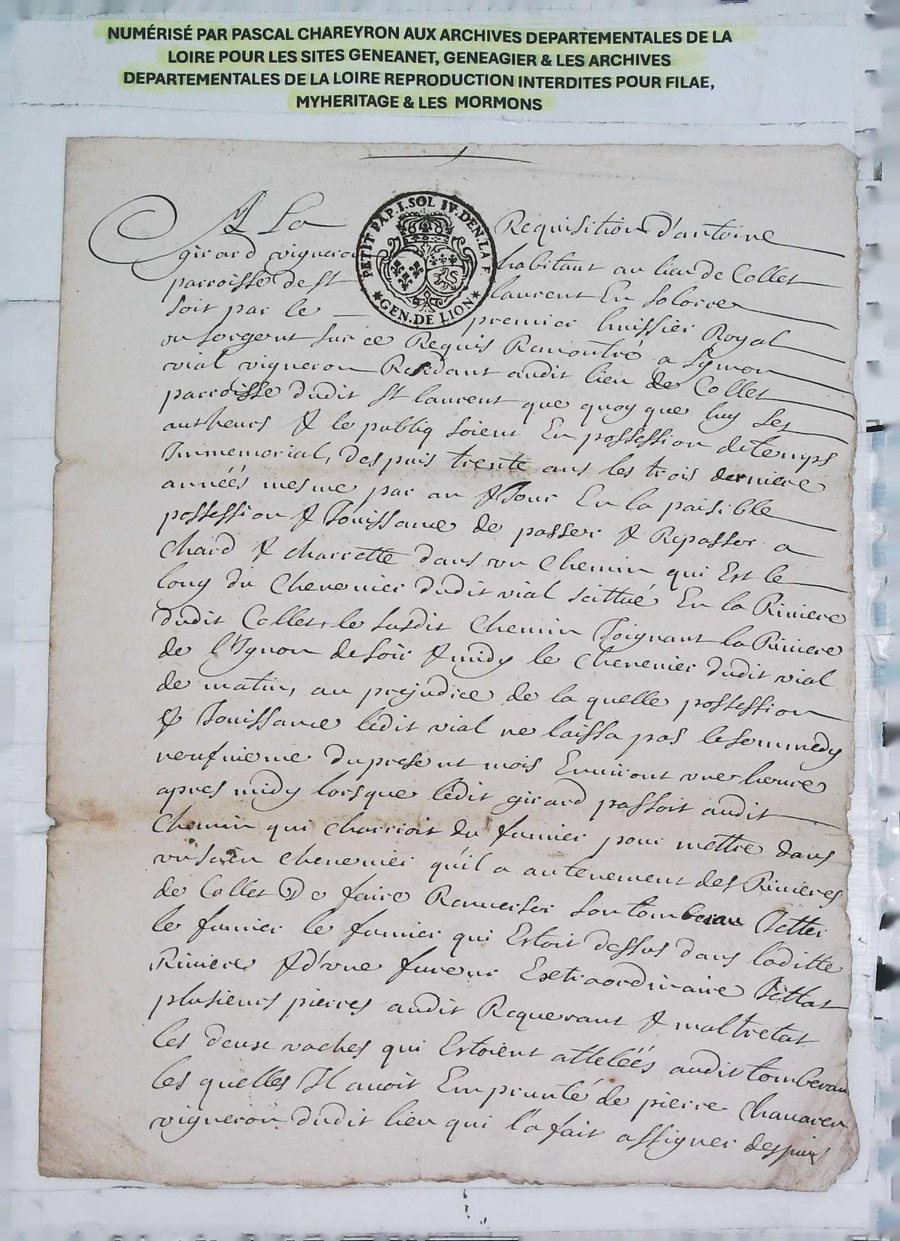 NUMÉRISÉ PAR PASCAL CHAREYRON AUX ARCHIVES DEPARTEMENTALES DE LA
LOIRE POUR LES SITES GENEANET, GENEAGIER & LES ARCHIVES
DEPARTEMENTALES DE LA LOIRE REPRODUCTION INTERDITES POUR FILAE,
MYHERITAGE & LES MORMONS
PETIT PAP. I. SOL IV. DEN. LA F.
GEN. DE LION
A La Requisition d'antoine
girard vigneron habitant au lieu de Collet
parroisse de St laurent En Solorre
soit par le premier huissier Royal
ou sergent sur ce Requis Remontré a Symon
vial vigneron Residant audit lieu de Collet
parroisse dudit St laurent que quoy que luy ses
autheurs & le publiq soient En possession de temps
Immemorial, despuis trente ans les trois derniere
années mesme par an & Jour En la paisible
possession & Jouissance de passer & Repasser a
Chard & charrette dans un Chemin qui Est le
long du Chenevier dudit vial scittué En la Riviere
dudit Collet, le susdit Chemin Joignant la Riviere
de l'Ignon de soir & midy le Chenevier dudit vial
de matin, au prejudice de la quelle possession
& Jouissance ledit vial ne laissa pas le sammedy
neufvieme du present mois Environt une heure
apres midy lorsque ledit girard passoit audit
Chemin qui charrioit du fumier pour mettre dans
un sien Chenevier qu'il a au tenement des Rivieres
de Collet De faire Ranverser son tombereau Jetter
le fumier le fumier qui Estoit dessus dans laditte
Riviere & d'une fureur Extraordinaire Jettat
plusieurs pierres audit Requerant & maltretat
les deux vaches qui Estoient attelées audit tombereau
les quelles Il avoit Emprunté de pierre
vigneron dudit lieu qui l'a fait assigner despuis